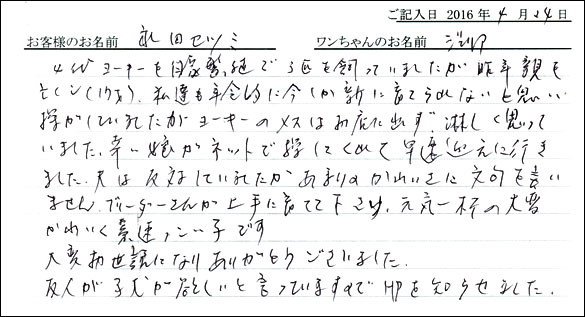 ご記入日 2016年4月24日
お客様のお名前 永田セツミ ワンちゃんのお名前
ヨーキーを自家繁殖で3匹を飼っていましたが昨年親も
亡くし(17才)、私達も年令的に今しか新に育てられないと思い
探がしていましたがヨーキーのメスはお店に出ず淋しく思って
いました、幸い娘がネットで探してくれて早速迎えに行き
ました、夫は反対していましたがあまりのかわいさに文句を言い
ません、ブリーダーさんが上手に育てて下さり、元気一杯の大変
かわいく人なつっこい子です
大変お世話になりありがとうございました。
友人が子犬が欲しいと言っていますのでHPを知らせました。